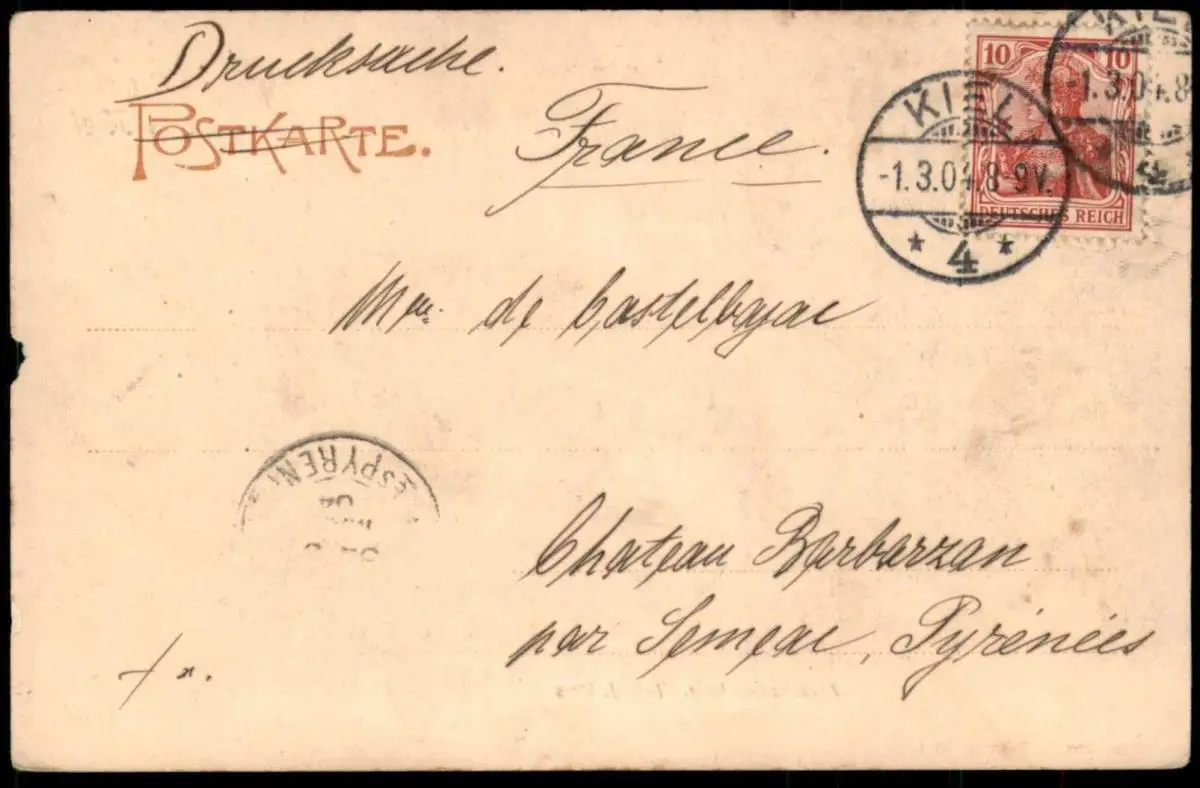 Drucksache.
POSTKARTE.
France.
10 10
DEUTSCHES REICH
KIEL
-1.3.04.8-9V.
* 4 *
KIEL
-1.3.04.8
4
Mme. de Castelbajac
ESPYREN
04
Chateau Barbarzan
par Semeac, Pyrénées